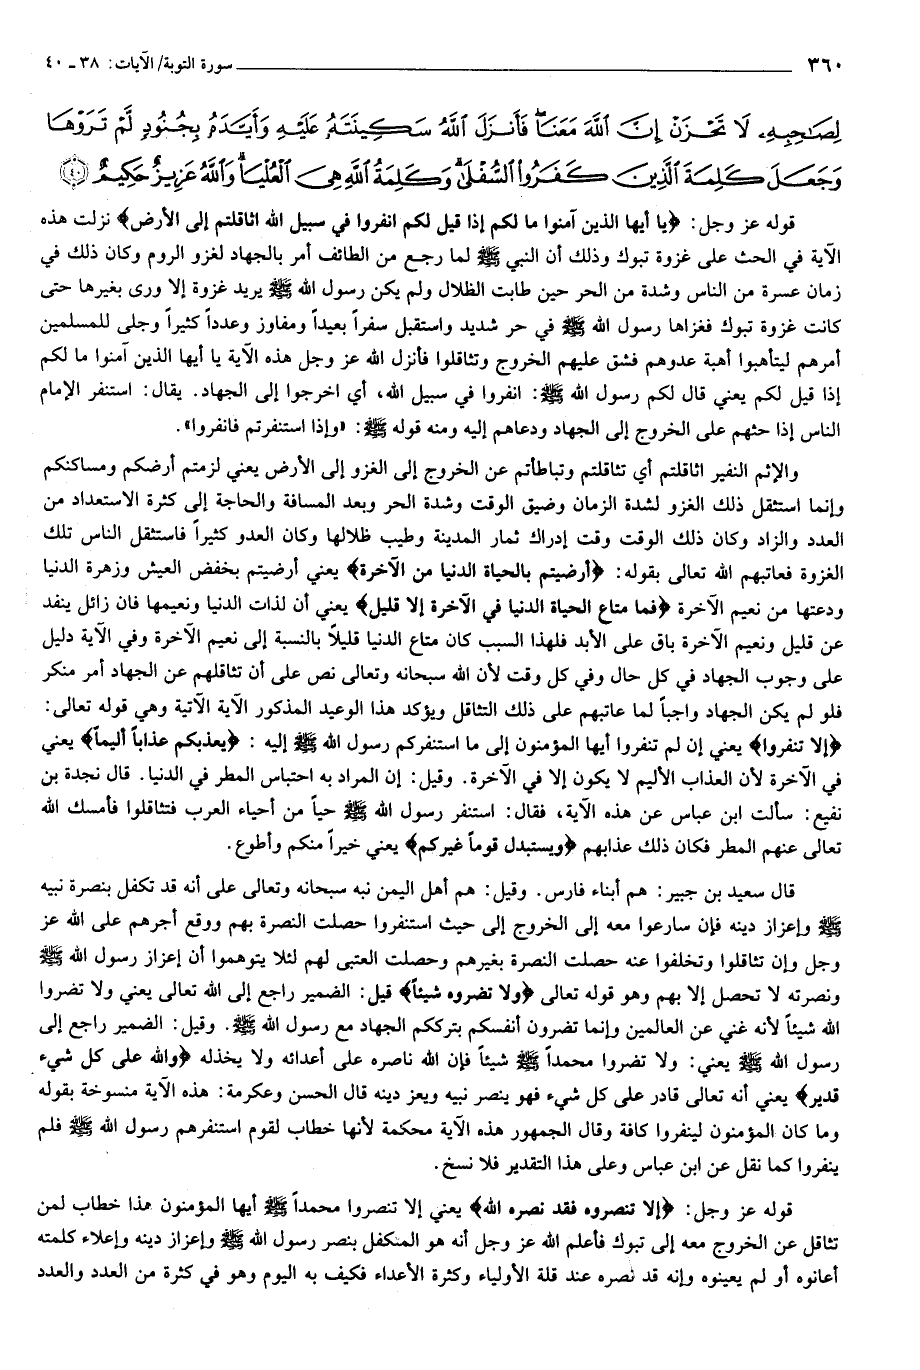 ٣٦٠ سورة التوبة/ الآيات: ٣٨ ـ ٤٠
لِصَاحِبِهِ، لَا تَحْزَنْ إِنَّ اللَّهَ مَعَنَا فَأَنزَلَ اللَّهُ سَكِينَتَهُ عَلَيْهِ وَأَيَّدَهُ بِجُنُودٍ لَّمْ تَرَوْهَا
وَجَعَلَ كَلِمَةَ الَّذِينَ كَفَرُوا السُّفْلَىٰ وَكَلِمَةُ اللَّهِ هِيَ الْعُلْيَا وَاللَّهُ عَزِيزٌ حَكِيمٌ ﴿٤٠﴾
قوله عز وجل: ﴿يا أيها الذين آمنوا ما لكم إذا قيل لكم انفروا في سبيل الله اثاقلتم إلى الأرض﴾ نزلت هذه
الآية في الحث على غزوة تبوك وذلك أن النبي ﷺ لما رجع من الطائف أمر بالجهاد لغزو الروم وكان ذلك في
زمان عسرة من الناس وشدة من الحر حين طابت الظلال ولم يكن رسول الله ﷺ يريد غزوة إلا ورى بغيرها حتى
كانت غزوة تبوك فغزاها رسول الله ﷺ في حر شديد واستقبل سفراً بعيداً ومفاوز وعدداً كثيراً وجلى للمسلمين
أمرهم ليتأهبوا أهبة عدوهم فشق عليهم الخروج وتثاقلوا فأنزل الله عز وجل هذه الآية يا أيها الذين آمنوا ما لكم
إذا قيل لكم يعني قال لكم رسول الله ﷺ: انفروا في سبيل الله، أي اخرجوا إلى الجهاد. يقال: استنفر الإمام
الناس إذا حثهم على الخروج إلى الجهاد ودعاهم إليه ومنه قوله ﷺ: «وإذا استنفرتم فانفروا».
والإثم النفير اثاقلتم أي تثاقلتم وتباطأتم عن الخروج إلى الغزو إلى الأرض يعني لزمتم أرضكم ومساكنكم
وإنما استثقل ذلك الغزو لشدة الزمان وضيق الوقت وشدة الحر وبعد المسافة والحاجة إلى كثرة الاستعداد من
العدد والزاد وكان ذلك الوقت وقت إدراك ثمار المدينة وطيب ظلالها وكان العدو كثيراً فاستثقل الناس تلك
الغزوة فعاتبهم الله تعالى بقوله: ﴿أرضيتم بالحياة الدنيا من الآخرة﴾ يعني أرضيتم بخفض العيش وزهرة الدنيا
ودعتها من نعيم الآخرة ﴿فما متاع الحياة الدنيا في الآخرة إلا قليل﴾ يعني أن لذات الدنيا ونعيمها فان زائل ينفد
عن قليل ونعيم الآخرة باق على الأبد فلهذا السبب كان متاع الدنيا قليلاً بالنسبة إلى نعيم الآخرة وفي الآية دليل
على وجوب الجهاد في كل حال وفي كل وقت لأن الله سبحانه وتعالى نص على أن تثاقلهم عن الجهاد أمر منكر
فلو لم يكن الجهاد واجباً لما عاتبهم على ذلك التثاقل ويؤكد هذا الوعيد المذكور الآية الآتية وهي قوله تعالى:
﴿إلا تنفروا﴾ يعني إن لم تنفروا أيها المؤمنون إلى ما استنفركم رسول الله ﷺ إليه : ﴿يعذبكم عذاباً أليماً﴾ يعني
في الآخرة لأن العذاب الأليم لا يكون إلا في الآخرة. وقيل: إن المراد به احتباس المطر في الدنيا. قال نجدة بن
نفيع: سألت ابن عباس عن هذه الآية، فقال: استنفر رسول الله ﷺ حياً من أحياء العرب فتثاقلوا فأمسك الله
تعالى عنهم المطر فكان ذلك عذابهم ﴿ويستبدل قوماً غيركم﴾ يعني خيراً منكم وأطوع.
قال سعيد بن جبير: هم أبناء فارس. وقيل: هم أهل اليمن نبه سبحانه وتعالى على أنه قد تكفل بنصرة نبيه
ﷺ وإعزاز دينه فإن سارعوا معه إلى الخروج إلى حيث استنفروا حصلت النصرة بهم ووقع أجرهم على الله عز
وجل وإن تثاقلوا وتخلفوا عنه حصلت النصرة بغيرهم وحصلت العتبى لهم لئلا يتوهموا أن إعزاز رسول الله ﷺ
ونصرته لا تحصل إلا بهم وهو قوله تعالى ﴿ولا تضروه شيئاً﴾ قيل: الضمير راجع إلى الله تعالى يعني ولا تضروا
الله شيئاً لأنه غني عن العالمين وإنما تضرون أنفسكم بترككم الجهاد مع رسول الله ﷺ. وقيل: الضمير راجع إلى
رسول الله ﷺ يعني: ولا تضروا محمداً ﷺ شيئاً فإن الله ناصره على أعدائه ولا يخذله ﴿والله على كل شيء
قدير﴾ يعني أنه تعالى قادر على كل شيء فهو ينصر نبيه ويعز دينه قال الحسن وعكرمة: هذه الآية منسوخة بقوله
وما كان المؤمنون لينفروا كافة وقال الجمهور هذه الآية محكمة لأنها خطاب لقوم استنفرهم رسول الله ﷺ فلم
ينفروا كما نقل عن ابن عباس وعلى هذا التقدير فلا نسخ.
قوله عز وجل: ﴿إلا تنصروه فقد نصره الله﴾ يعني إلا تنصروا محمداً ﷺ أيها المؤمنون هذا خطاب لمن
تثاقل عن الخروج معه إلى تبوك فأعلم الله عز وجل أنه هو المتكفل بنصر رسول الله ﷺ وإعزاز دينه وإعلاء كلمته
أعانوه أو لم يعينوه وإنه قد نصره عند قلة الأولياء وكثرة الأعداء فكيف به اليوم وهو في كثرة من العدد والعدد